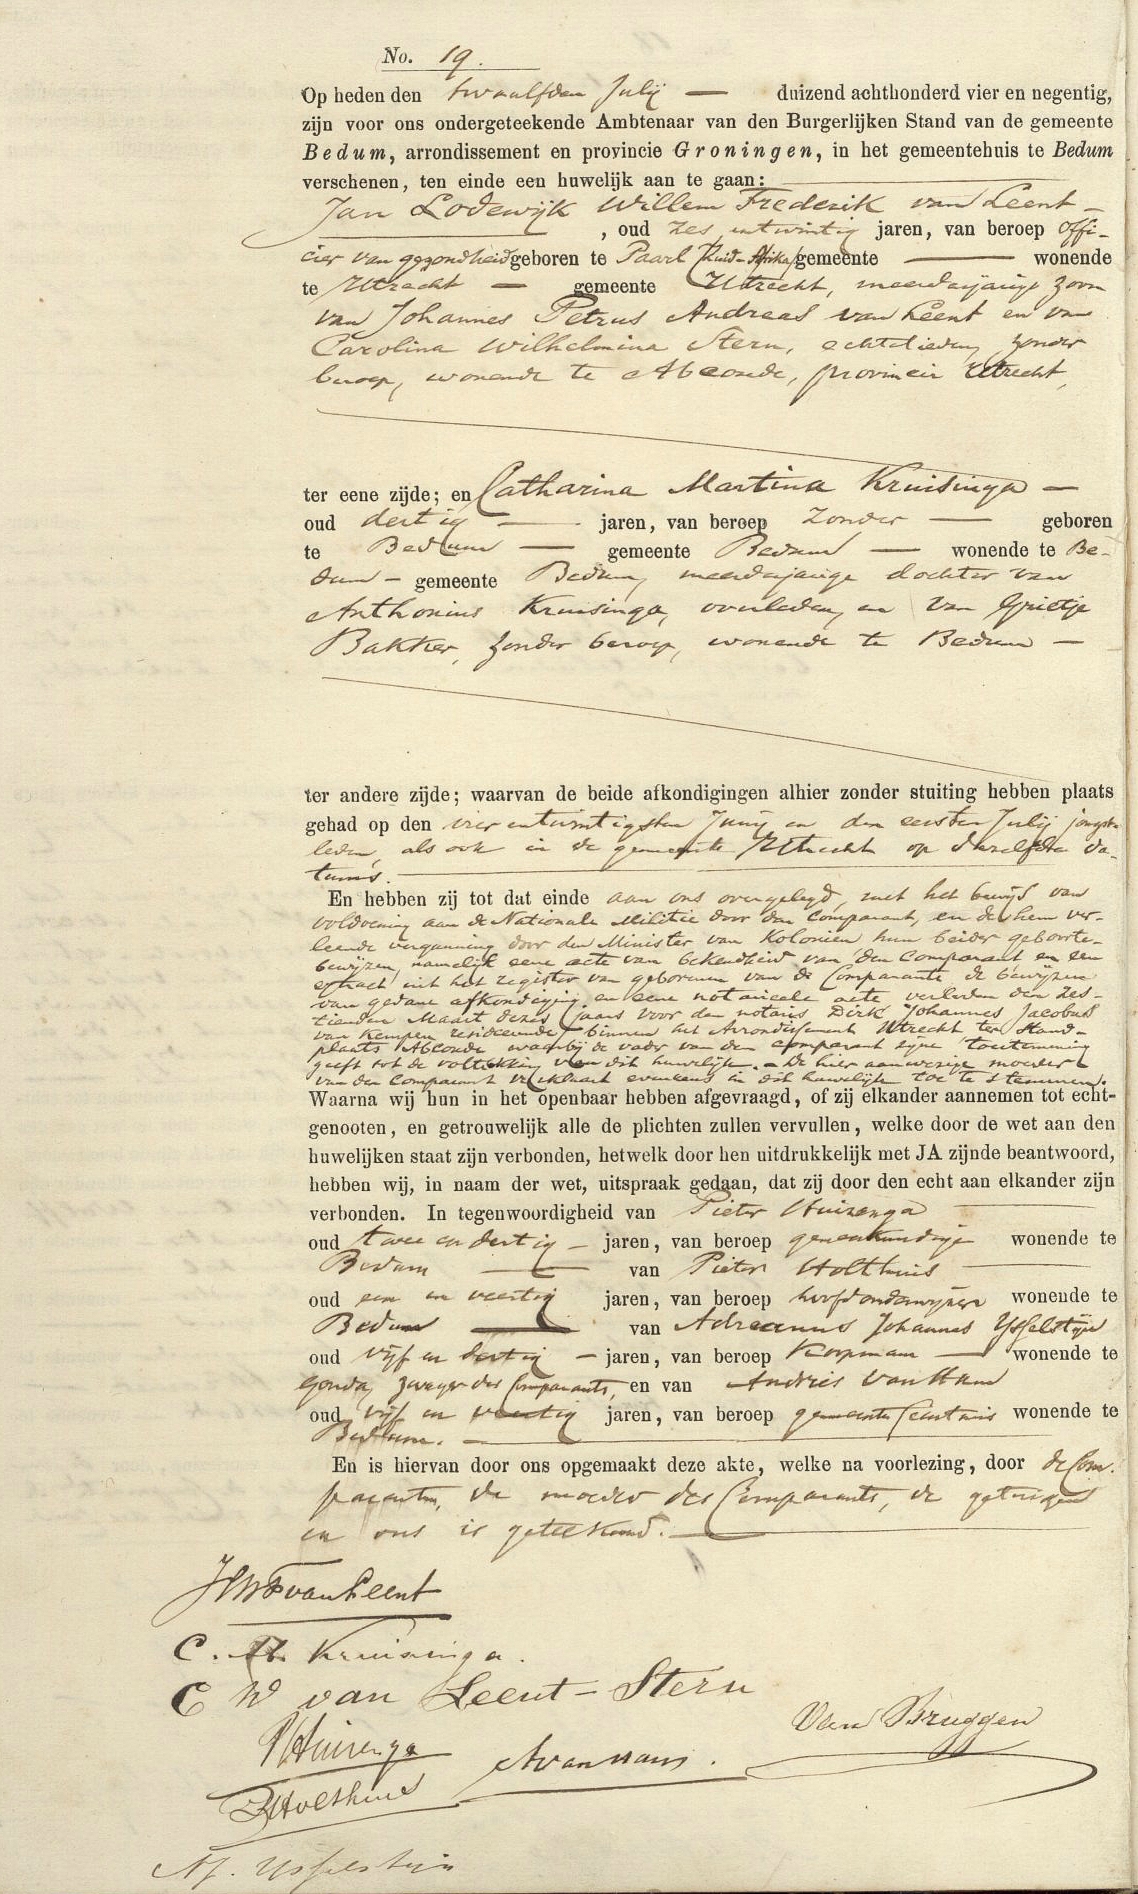 No. 19.
Op heden den twaalfden Julij — duizend achthonderd vier en negentig,
zijn voor ons ondergeteekende Ambtenaar van den Burgerlijken Stand van de gemeente
Bedum, arrondissement en provincie Groningen, in het gemeentehuis te Bedum
verschenen, ten einde een huwelijk aan te gaan:
Jan Lodewijk Willem Frederik van Leent —
, oud zes entwintig jaren, van beroep offi-
cier van gezondheid geboren te Paarl (Zuid-Afrika) gemeente — wonende
te Utrecht — gemeente Utrecht, meerderjarige zoon
van Johannes Petrus Andreas van Leent en van
Carolina Wilhelmina Stern, echtelieden, zonder
beroep, wonende te Abcoude, provincie Utrecht,
ter eene zijde; en Catharina Martina Kruisinga —
oud dertig — jaren, van beroep zonder — geboren
te Bedum — gemeente Bedum — wonende te Be-
dum — gemeente Bedum, meerderjarige dochter van
Anthonius Kruisinga, overleden, en van Grietje
Bakker, zonder beroep, wonende te Bedum —
ter andere zijde; waarvan de beide afkondigingen alhier zonder stuiting hebben plaats
gehad op den vier entwintigsten Junij en den eersten Julij jongst-
leden, als ook in de gemeente Utrecht op dezelfde da-
tums.
En hebben zij tot dat einde aan ons overgelegd, met het bewijs van
voldoening aan de Nationale Militie door den Comparant, en de hem ver-
leende vergunning door den Minister van Kolonien hun beider geboorte-
bewijzen, namelijk eene acte van bekendheid van den Comparant en een
extract uit het register van geborenen van de Comparante de bewijzen
van gedane afkondiging en eene notarieele acte verleden den zes-
tienden Maart dezes jaars voor den notaris Dirk Johannes Jacobus
van Kempen residerende binnen het Arrondissement Utrecht ter stand-
plaats Abcoude waarbij de vader van den comparant zijne toestemming
geeft tot de voltrekking van dit huwelijk. — De hier aanwezige moeder
van den Comparant verklaart eveneens in dit huwelijk toe te stemmen.
Waarna wij hun in het openbaar hebben afgevraagd, of zij elkander aannemen tot echt-
genooten, en getrouwelijk alle de plichten zullen vervullen, welke door de wet aan den
huwelijken staat zijn verbonden, hetwelk door hen uitdrukkelijk met JA zijnde beantwoord,
hebben wij, in naam der wet, uitspraak gedaan, dat zij door den echt aan elkander zijn
verbonden. In tegenwoordigheid van Pieter Huizenga
oud twee en dertig — jaren, van beroep geneeskundige wonende te
Bedum — van Pieter Holthuis
oud een en veertig jaren, van beroep hoofdonderwijzer wonende te
Bedum — van Adreanus Johannes Ysselstijn
oud vijf en dertig — jaren, van beroep Koopman — wonende te
Gouda, zwager des Comparants, en van Andries van Ham
oud vijf en veertig jaren, van beroep gemeente Secretaris wonende te
Bedum. —
En is hiervan door ons opgemaakt deze akte, welke na voorlezing, door de Com-
paranten, de moeder des Comparants, de getuigen
en ons is geteekend. —
JLWF van Leent
C. M. Kruisinga.
C W van Leent-Stern
Van Bruggen
PHuizenga
AvanHam.
PHolthuis
AJ. Ysselstijn